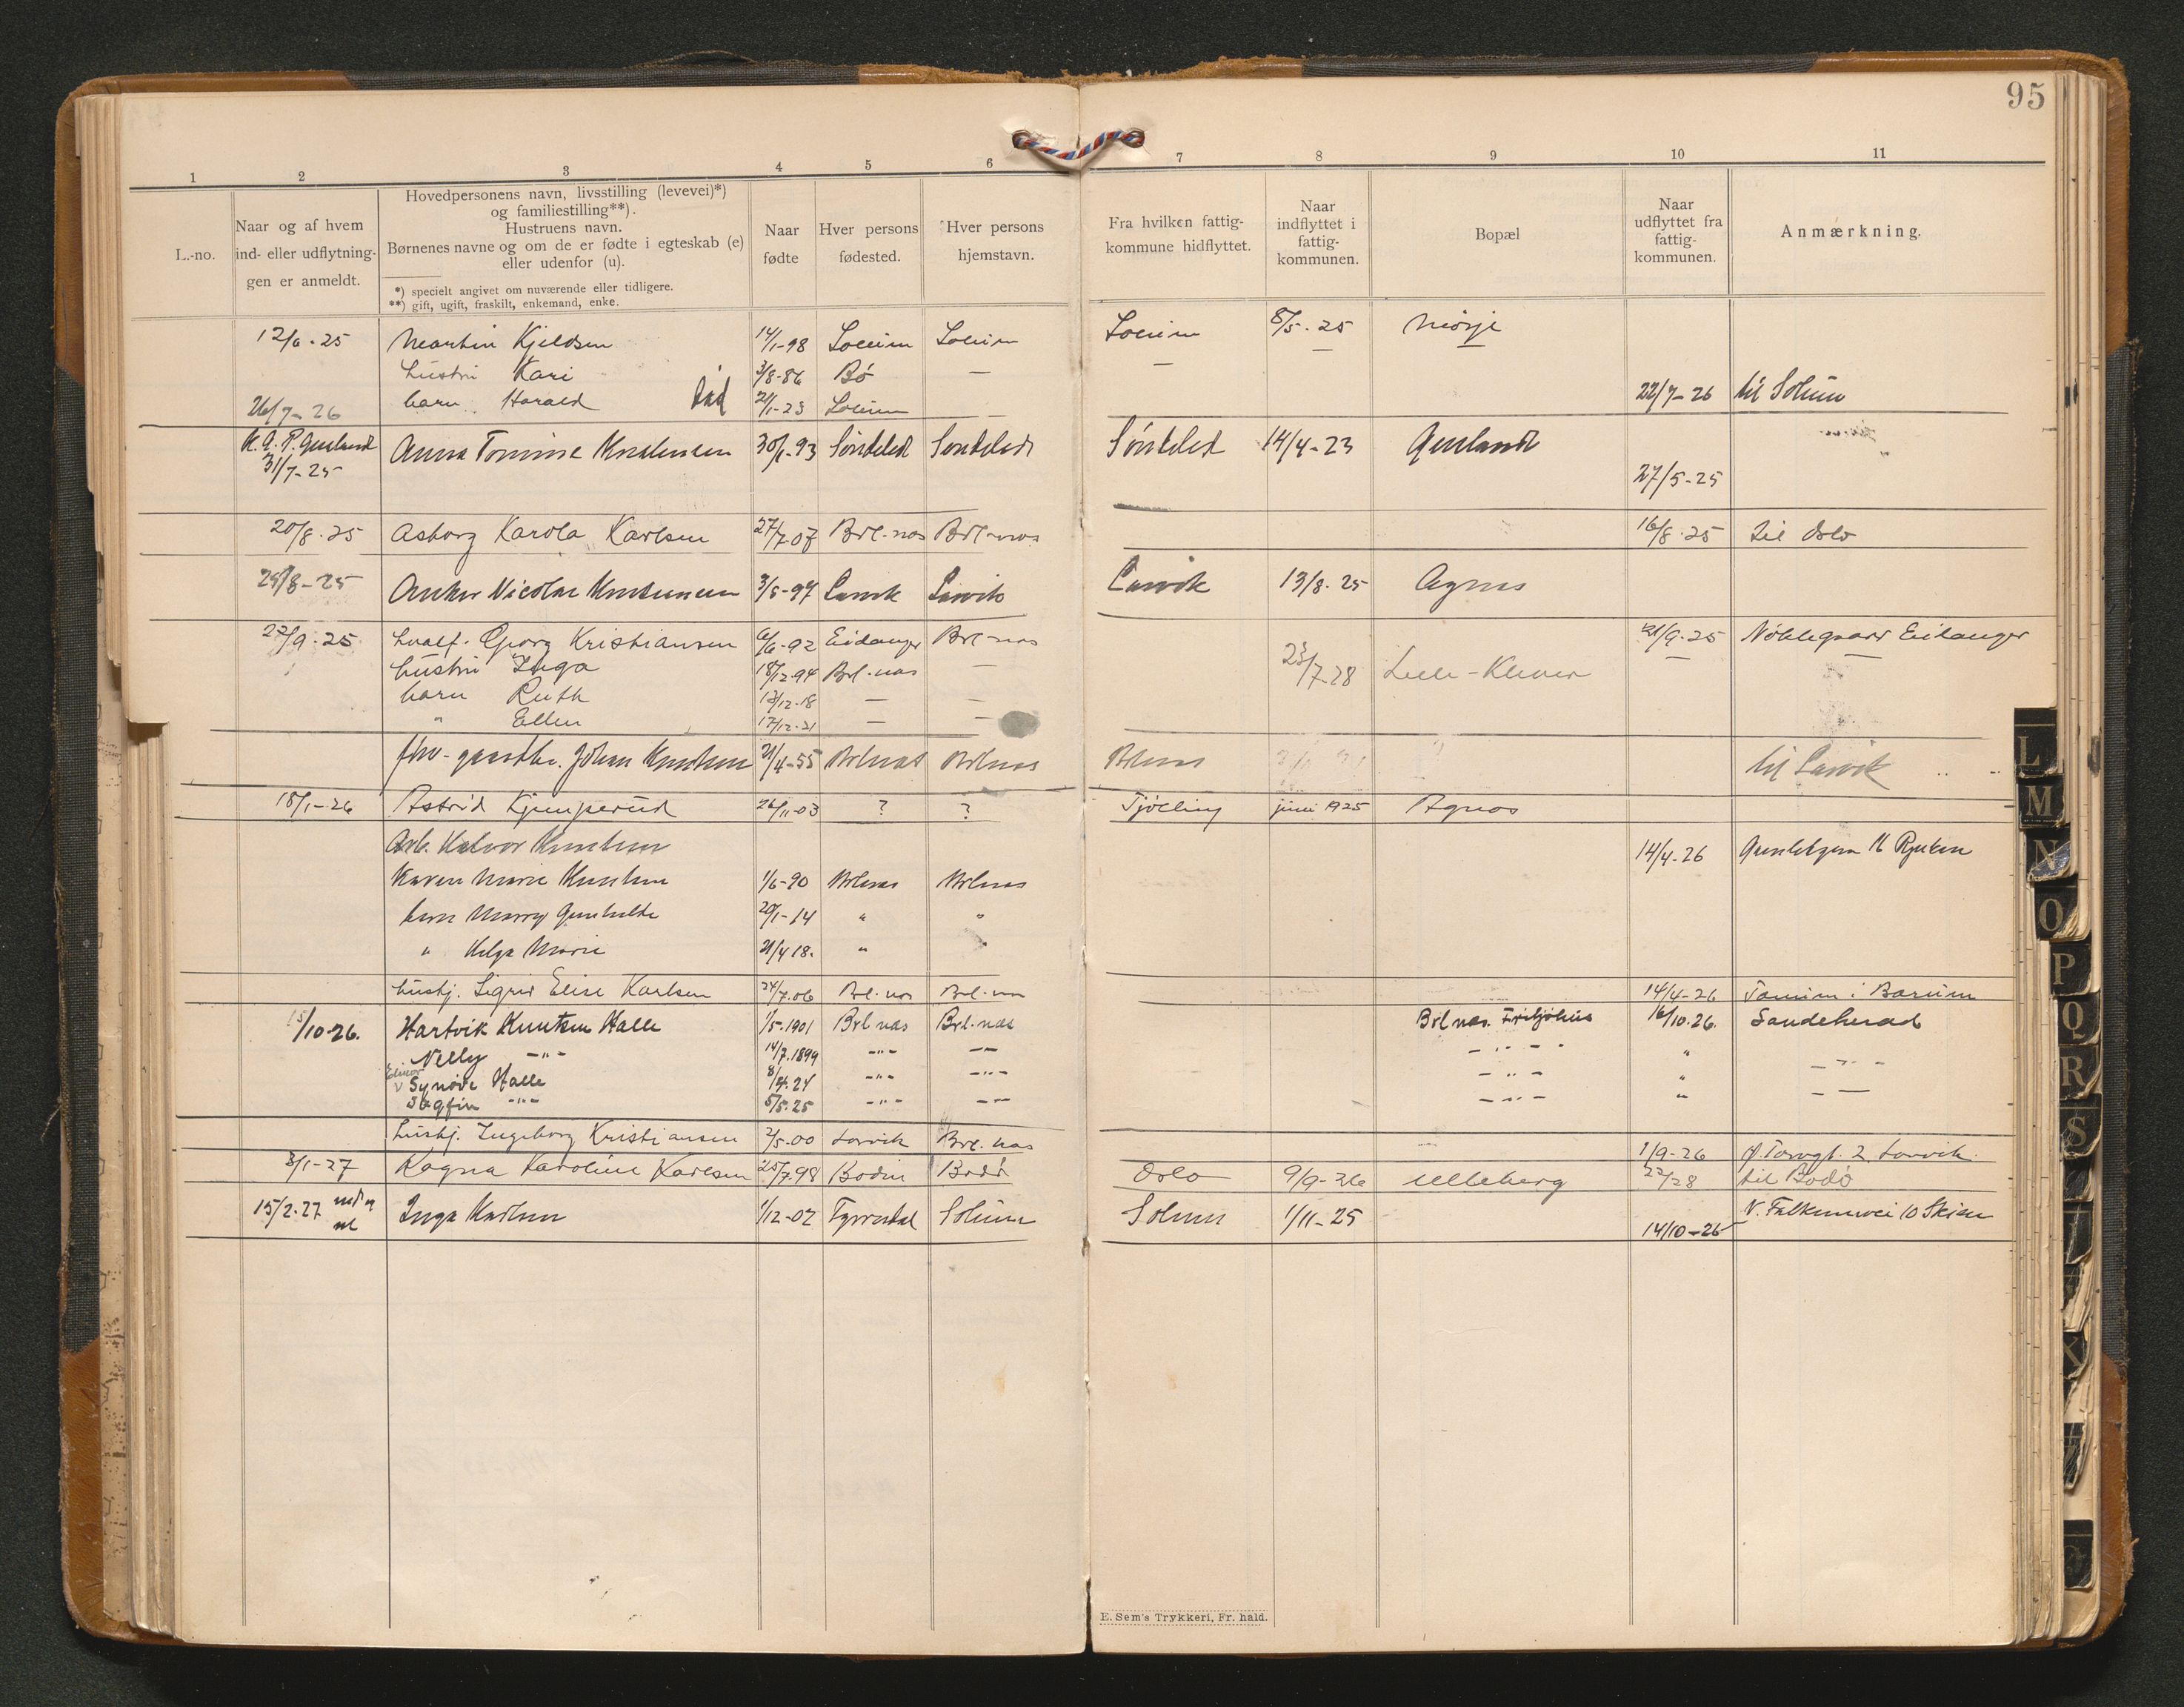 95
1 2 3 4 5 6 7 8 9 10 11
L.-no.
Naar og af hvem
ind- eller udflytnin-
gen er anmeldt.
Hovedpersonens navn, livsstilling (levevei)*)
og familiestilling**).
Hustruens navn.
Børnenes navne og om de er fødte i egteskab (e)
eller udenfor (u).
*) specielt angivet om nuværende eller tidligere.
**) gift, ugift, fraskilt, enkemand, enke.
Naar
fødte
Hver persons
fødested.
Hver persons
hjemstavn.
Fra hvilken fattig-
kommune hidflyttet.
Naar
indflyttet i
fattig-
kommunen.
Bopæl
Naar
udflyttet fra
fattig-
kommunen.
Anmærkning.
12/6.25 Martin Kjeldsen 14/1-98 Solum Solum Solum 8/5.25 Mørje
hustru Kari 3/8-86 Bø — — —
26/7-26 barn Harald død 21/1-23 Solum — 22/7-26 til Solum
31/7-25 Anna Tomine Knudsen 30/1-93 Søndeled Søndeled Søndeled 14/4-23
27/5-25
20/8.25 Asborg Karola Karlsen 27/7.07 Brl.nes Brl.nes 16/8.25 til Oslo
25/8-25 Anker Nicolai 3/5-97 Larvik Larvik Larvik 13/8.25 Agnes
27/9.25 Georg Kristiansen 6/6-92 Eidanger Brl-nes 21/9.25 Nøklegaard Eidanger
hustru Inga 18/12-94 Brl.nes — 23/7.28
barn Ruth 12/12-18 — —
" Ellen 17/12-21 — —
Johan Knudsen 21/4-55 Brlnes Brlnes Brlnes til Larvik
18/1-26 Astrid Kjempерud 26/11-03 ? ? Tjølling juni 1925 Agnes
Arb. Halvor Knudsen 14/4-26 Rjukan
Karen Marie Knudsen 1/6-90 Brlnes Brlnes
barn Marry Gunhilde 20/1-14 " "
" Helga Marie 21/4 18. " "
hushj. Sigrid Elise Karlsen 24/7.06 Brl.nes Brl.nes 14/4-26 Tanum i Bærum
15/10-26. Hartvik Knutsen Halle 1/5.1901 Brl nes Brl.nes Brl nes. Fritzøhus 16/10.26. Sandeherad
Nelly -"- 14/7.1899 -"- -"- -"- " -"-
Elinor
v Synøve Halle 8/4.24 -"- -"- -"- " -"-
Dagfin -"- 5/5.25 -"- -"- -"- " -"-
hushj. Ingeborg Kristiansen 2/5.00 Larvik Brl.nes 1/9-26 Torvgt. 2. Larvik
3/1-27 Ragna Karoline Karlsen 25/7.98 Bodin Bodø Oslo 9/9-26 Ulleberg 22/28 til Bodø
15/2.27 Inga Karlsen 1/12-02 Solum Solum 1/11-25 14/10-26 V. Falkumvei 10 Skien
E. Sem's Trykkeri, Fr. hald.
L
M
N
O
P
Q
R
S